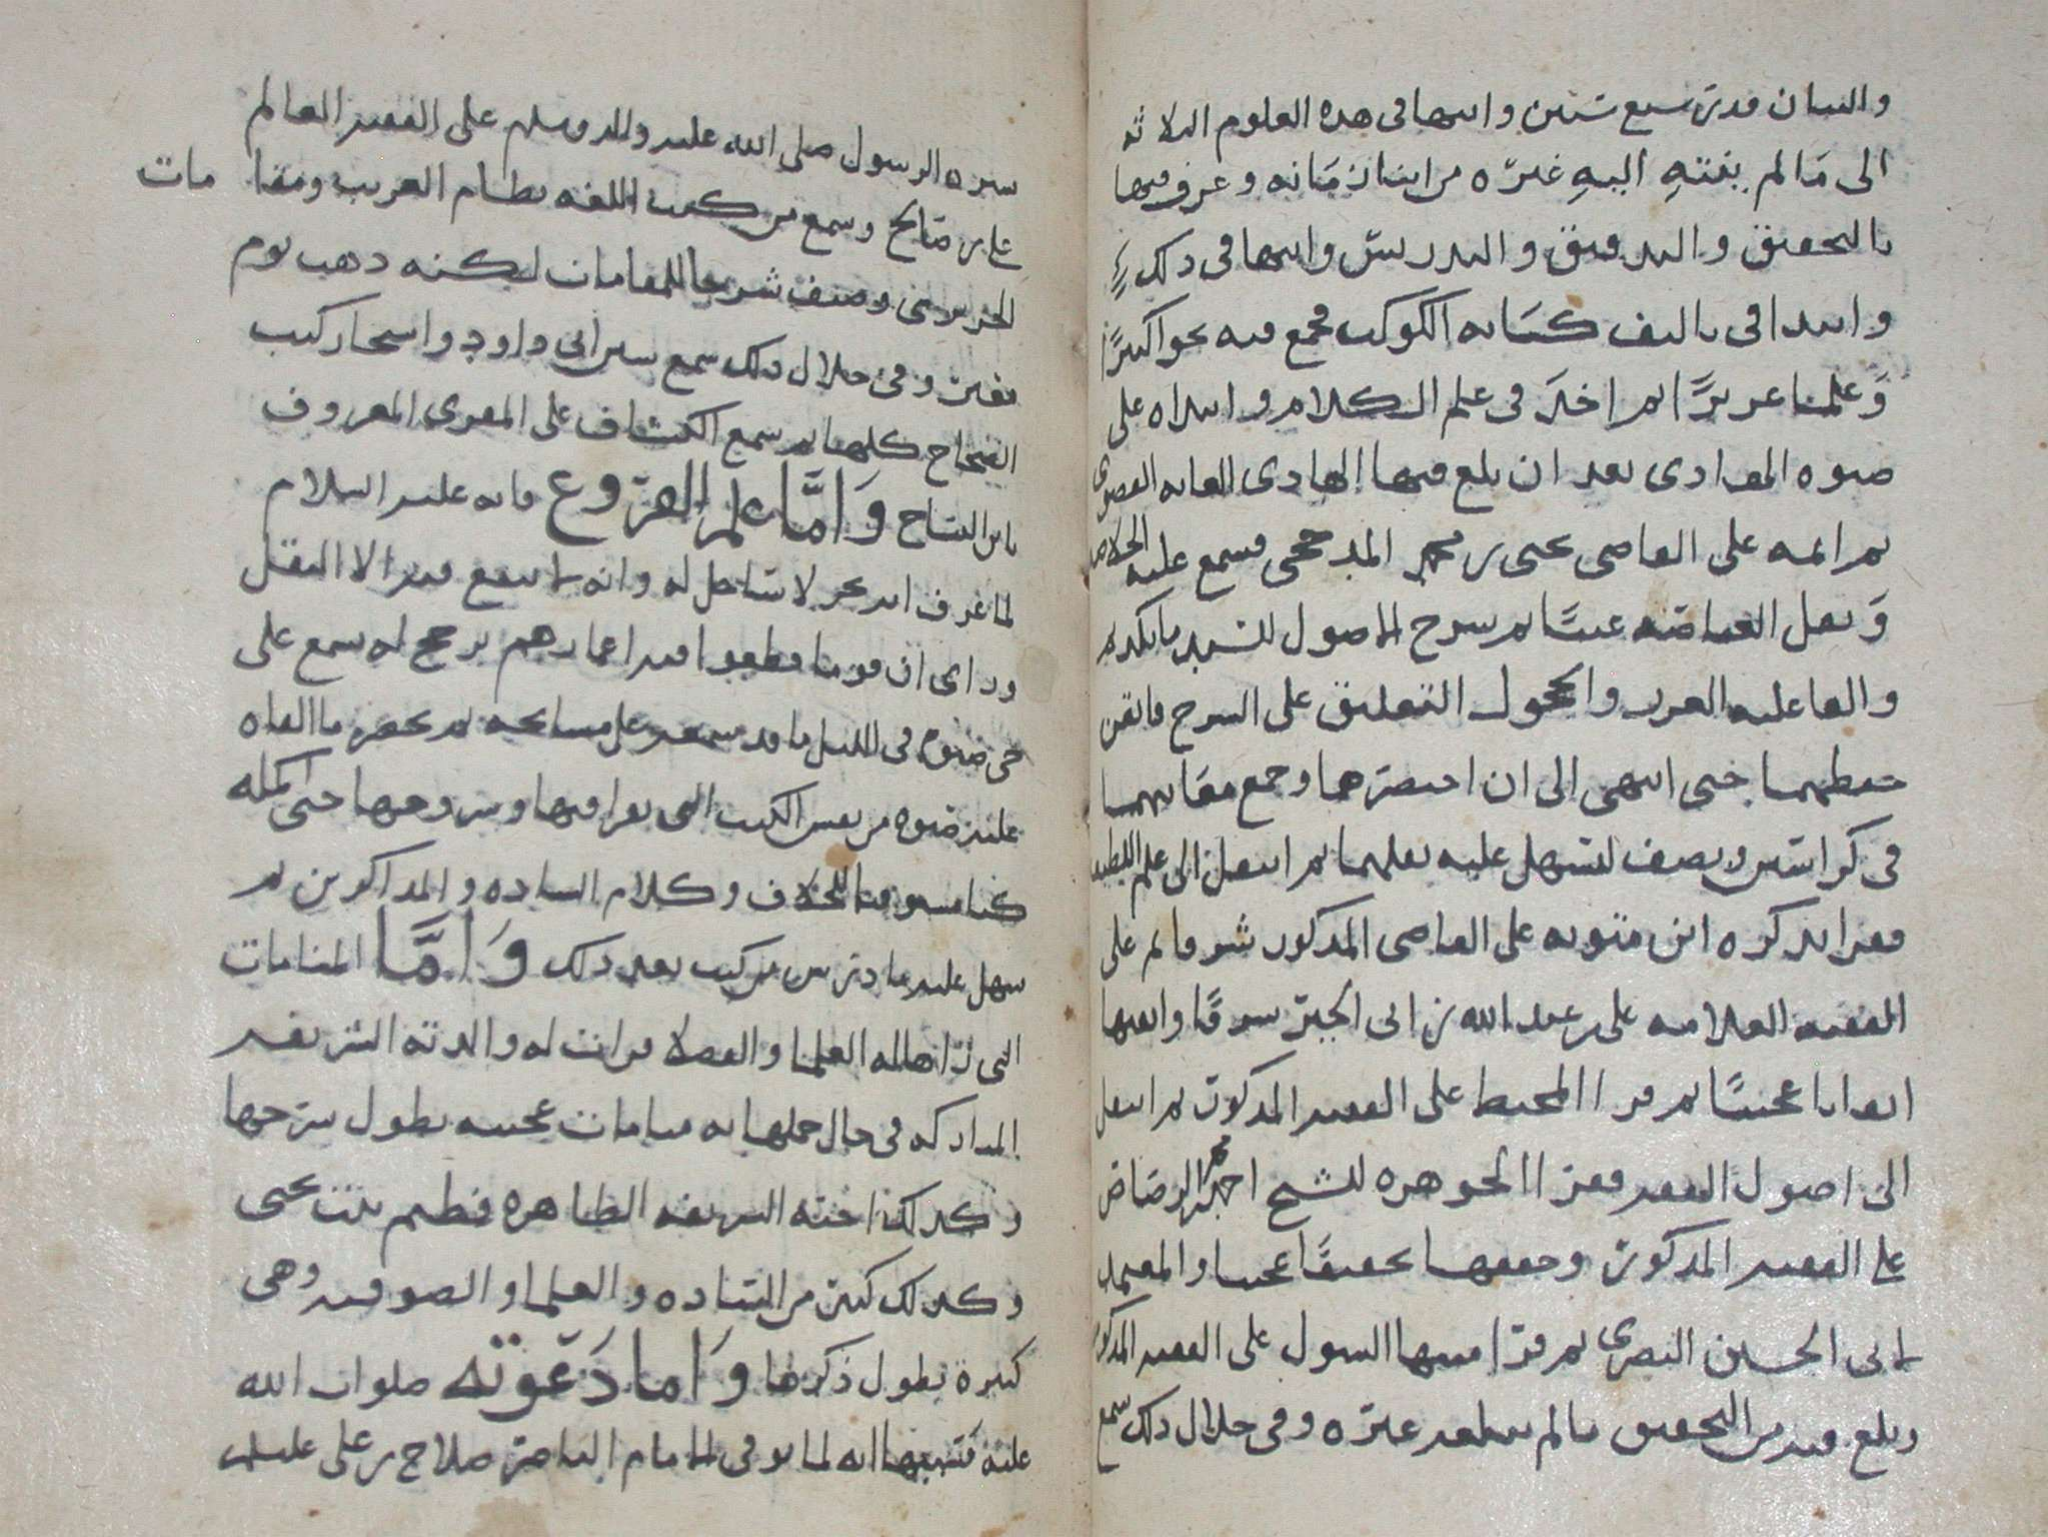 والبيان قدر سبع سنين وانتهى في هذه العلوم الثلاثه
الى مَا لم ينته اليهِ غيرَه من ابنا زمَانه وعرف فيها
بالتحقيق والتدقيق والتدريسَ وانتهى في ذلك
وابتدا في تاليف كتَابه الكوكب فجمع فيه نحوا كثيرًا
وَعلما عزيزًا ثم اخذَ في علم الكلام وابتداه على
صنوه الهادي بعد ان بلغ فيها الهادي الغايه القصوى
ثم اتمه على القاضي يحيى بن محمد المذحجي فسمع عليه الخلاصه
وَنقل الغياصه غيبًا ثم شرح الاصول للسيد مانكديم
والقا عليه الغرر والحجول التعليق على الشرح فاتقن
حفظهما حتى انتهى الى ان اختصرَهما وجمع معَانيهما
في كراسَتين ونصف ليسَهل عليه نقلهما ثم انتقل الى علم اللطيف
فقرا تذكره ابن متويه على القاضي المذكور شرفا ثم على
الفقيه العلامه علي بن عبد الله بن ابي الخيرَ شرفًا واتقنها
اتقانا عجيبًا ثم قرا المحيط على الفقيه المذكورَ ثم انتقل
الى اصول الفقه فقرَا الجوهره للشيخ احمد بن محمد الرصَاص
على الفقيه المذكورَ وحققها تحقيقًا عجيبا والمعتمد
لابي الحسين البصري ثم قرَا منتهى السول على الفقيه المذكور
وبلغ فيه من التحقيق ما لم يبلغه غيرَه وفي خلال ذلك سمع
سيره الرسول صلى الله عليه واله وسلم على الفقيه العالم
علي بن صَالح وسمع من كتب اللغه نظام الغريب ومقامات
الحريري وصنف شرحا للمقامات لكنه ذهب يوم
وفي خلال ذلك سمع سنن ابي داود
الصحاح كلها ثم سمع الكشاف على المقري المعروف
بابن النساخ وَامَّا علم الفرُوع فانه عليه السلام
لما عرف انه بحر لا سَاحل له وانه لا ينفع فيه الا النقل
وراى ان قوما قطعوا فيه اعمارهم ترجح له سمع على
حي صنوه في الليل ما قد سمعه على مشايخه ثم يحضر ما القاه
عليه صنوه من نفس الكتب التي يقرا فيها وشروحها حتى اكمله
الخلاف وكلام الساده والمذاكرين ثم
سهل عليه ما درَس من كتب بعد ذلك وَامَّا المنامات
التي رَاها له العلما والفضلا فرات له والدته الشريفه
المباركه في حال حملها به منامات عجيبه يطول شرَحها
وكذلك اخته الشريفه الطاهره فطيم بنت يحيى
وكذلك كثيرَ من السَاده والعلما والصوفيه وهي
كثيره يطول ذكرها وَاما دَعوَته صلوات الله
عليه فسَببها انه لما توفي الامام الناصرَ صلاح بن علي عليلم